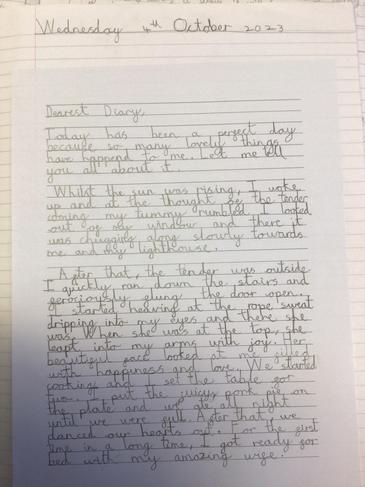 Wednesday 4th October 2023
Dearest Diary,
Today has been a perfect day
because so many lovely things
have happend to me. Let me tell
you all about it.
Whilst the sun was rising, I woke
up and at the thought of the tender
coming my tummy rumbled. I looked
out of my window and there it
was chugging along slowly towards
me and my lighthouse.
After that, the tender was outside
I quickly ran down the stairs and
ferociously flung the door open.
I started heaving at the rope sweat
dripping into my eyes and there she
was. When she was at the top, she
leapt into my arms with joy. Her
beautiful face looked at me filled
with happiness and love. We started
cooking and I set the table for
two. I put the juicy pork pie on
the plate and we ate all night
until we were full. After that, we
danced our hearts out. For the first
time in a long time, I got ready for
bed with my amazing wife.